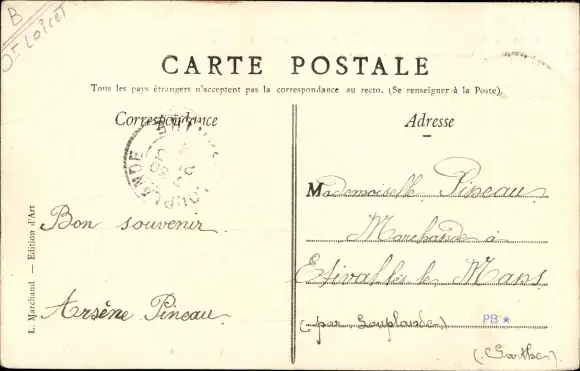 B
Dt Loiret
CARTE POSTALE
Tous les pays étrangers n'acceptent pas la correspondance au recto. (Se renseigner à la Poste).
Correspondance
Adresse
Bon souvenir
Arsène Pineau
L. Marchand — Edition d'Art
Mademoiselle Pineau
Marchande à
Etival lès le Mans
(par Souplande)
PB *
(Sarthe)